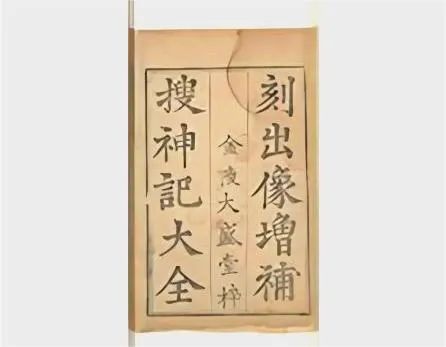 刻出像増補
搜神記大全
金陵大盛堂梓